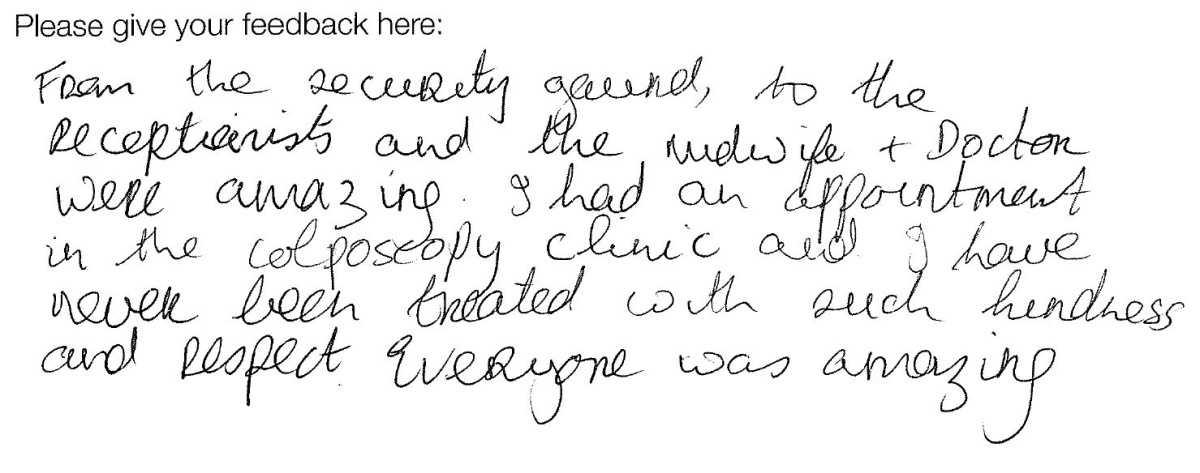 Please give your feedback here:
From the security gaurd, to the
Receptionists and the midwife + Doctor
were amazing. I had an appointment
in the colposcopy clinic and I have
never been treated with such kindness
and respect. Everyone was amazing